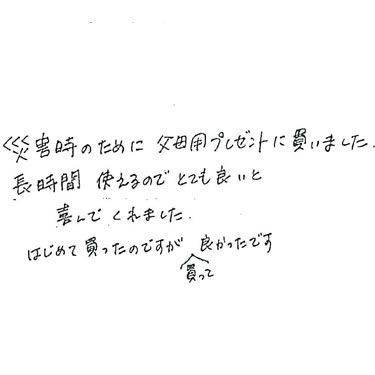 災害時のために 父母用プレゼントに買いました.
長時間 使えるので とても良いと
喜んで くれました.
はじめて買ったのですが 良かったです
買って